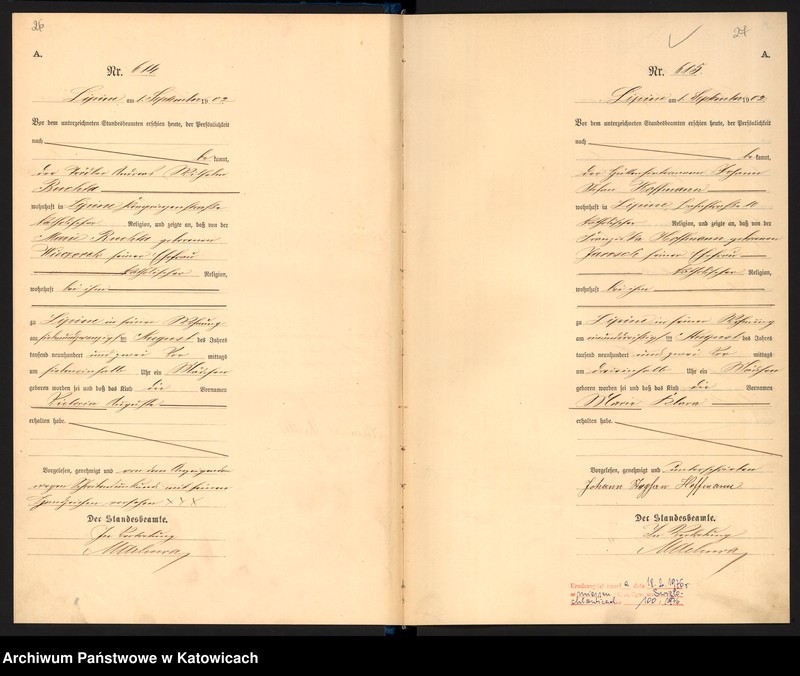 26
A.
Nr. 614.
Lipine am 1. September 1902
Vor dem unterzeichneten Standesbeamten erschien heute, der Persönlichkeit
nach
be kannt,
der
wohnhaft in Lipine
katholischer Religion, und zeigte an, daß von der
Marie Ruchla geborenen
seiner Ehefrau
katholischer Religion,
wohnhaft bei ihm
zu Lipine in seiner Wohnung
am siebenundzwanzigsten August des Jahres
tausend neunhundert und zwei Vor mittags
um siebeneinhalb Uhr ein Mädchen
geboren worden sei und daß das Kind die Vornamen
Victoria Auguste
erhalten habe.
Vorgelesen, genehmigt und von dem Anzeigenden
wegen Schreibensunkunde mit seinem
Handzeichen versehen XXX
Der Standesbeamte.
In Vertretung
27
A.
Nr. 615.
Lipine am 1. September 1902.
Vor dem unterzeichneten Standesbeamten erschien heute, der Persönlichkeit
nach
be kannt,
der Johann
Stefan Hoffmann
wohnhaft in Lipine
katholischer Religion, und zeigte an, daß von der
Franziska Hoffmann geborenen
seiner Ehefrau
katholischer Religion,
wohnhaft bei ihm
zu Lipine in seiner Wohnung
am einunddreißigsten August des Jahres
tausend neunhundert und zwei Vor mittags
um dreieinhalb Uhr ein Mädchen
geboren worden sei und daß das Kind die Vornamen
Marie Klara
erhalten habe.
Vorgelesen, genehmigt und unterschrieben
Johann Stephan Hoffmann
Der Standesbeamte.
In Vertretung
Archiwum Państwowe w Katowicach